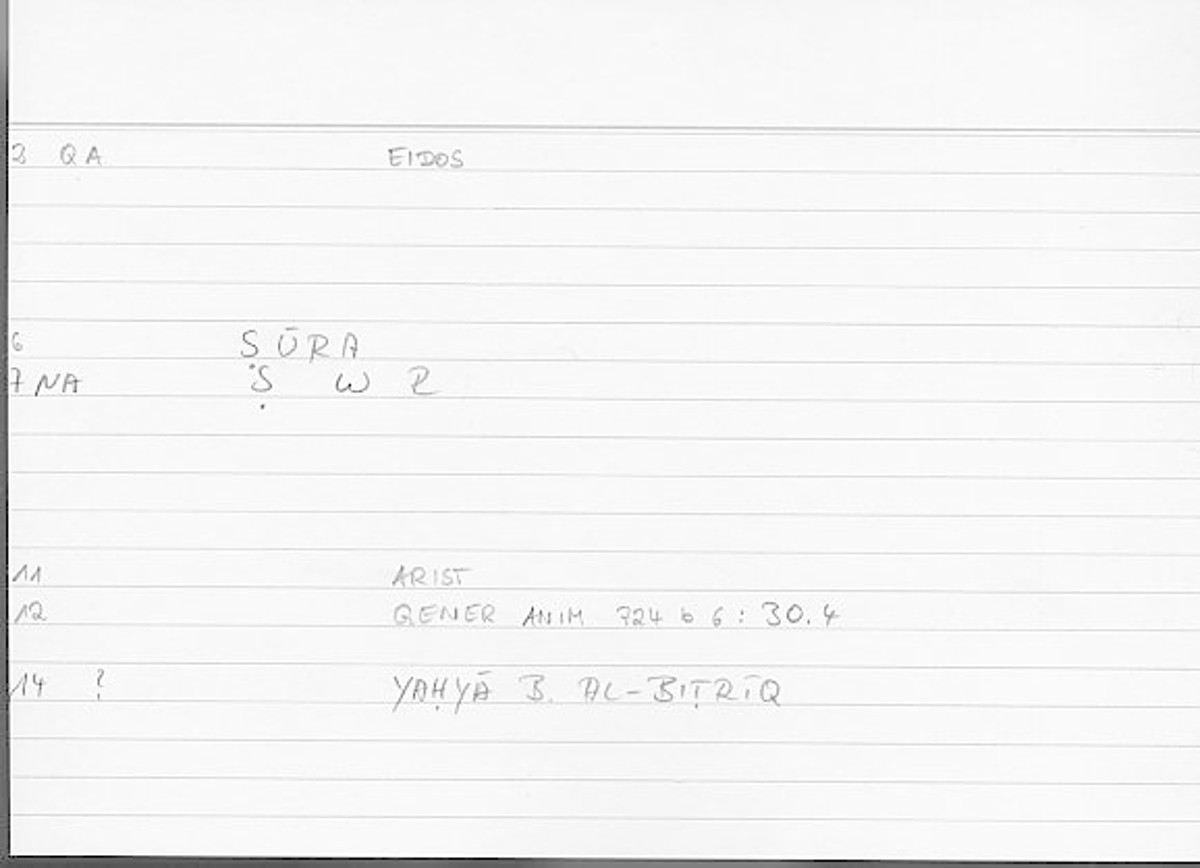 3 QA EIDOS
6 ṢŪRA
7 NA Ṣ W R
11 ARIST
12 GENER ANIM 724 b 6 : 30.4
14 ? YAḤYĀ B. AL-BIṬRĪQ